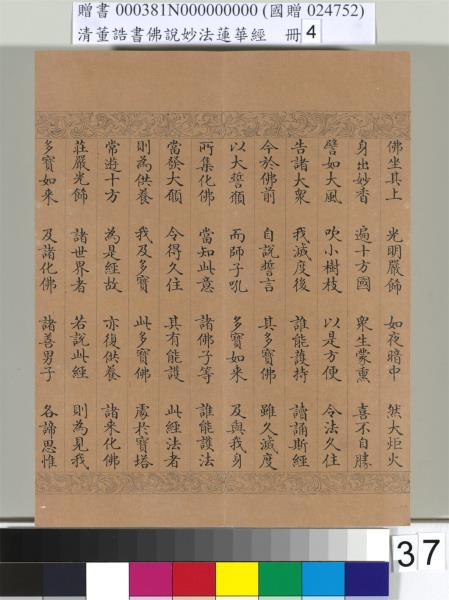 贈書 000381N000000000 (國贈 024752)
清董誥書佛說妙法蓮華經 冊 4
佛坐其上 光明嚴飾 如夜暗中 然大炬火
身出妙香 遍十方國 衆生蒙熏 喜不自勝
譬如大風 吹小樹枝 以是方便 令法久住
告諸大衆 我滅度後 誰能護持 讀誦斯經
今於佛前 自說誓言 其多寶佛 雖久滅度
以大誓願 而師子吼 多寶如來 及與我身
所集化佛 當知此意 諸佛子等 誰能護法
當發大願 令得久住 其有能護 此經法者
則為供養 我及多寶 此多寶佛 處於寶塔
常遊十方 為是經故 亦復供養 諸來化佛
莊嚴光飾 諸世界者 若說此經 則為見我
多寶如來 及諸化佛 諸善男子 各諦思惟
37